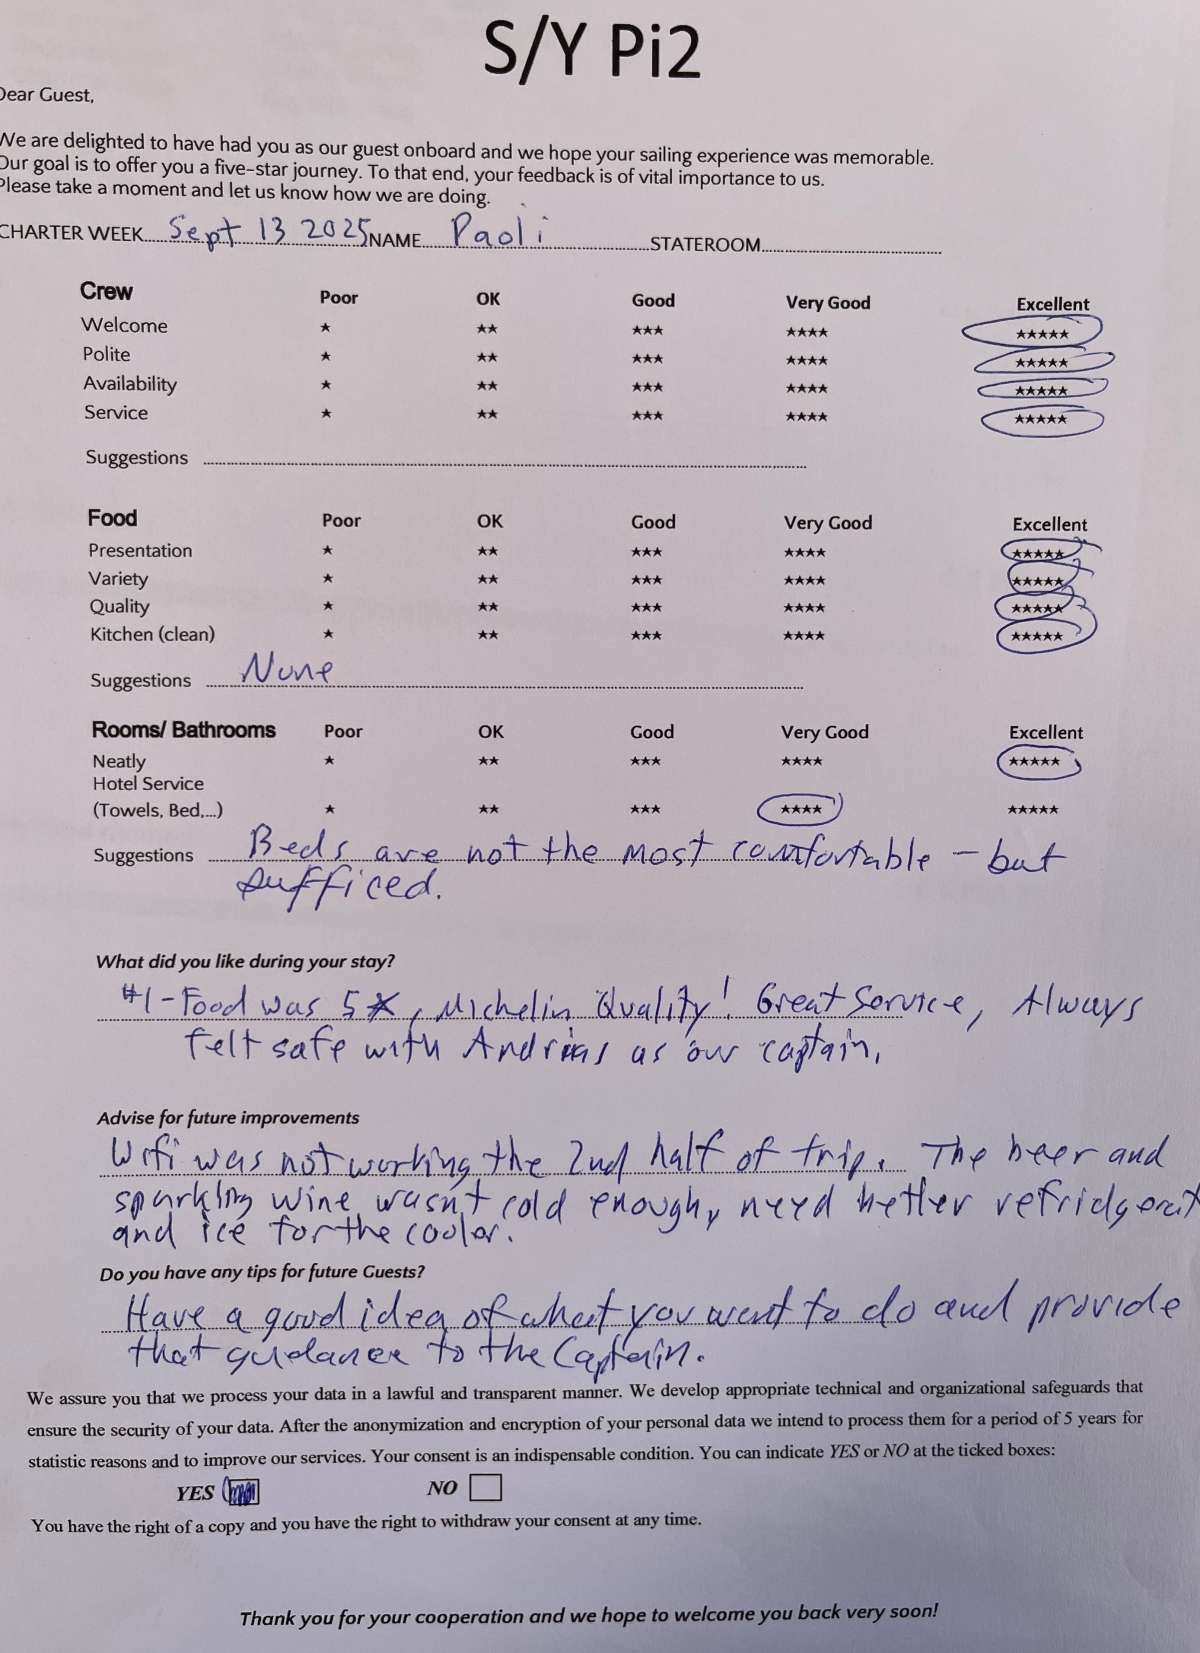 S/Y Pi2
Dear Guest,
We are delighted to have had you as our guest onboard and we hope your sailing experience was memorable.
Our goal is to offer you a five-star journey. To that end, your feedback is of vital importance to us.
Please take a moment and let us know how we are doing.
CHARTER WEEK Sept 13 2025 NAME Paoli STATEROOM
Crew Poor OK Good Very Good Excellent
Welcome ★ ★★ ★★★ ★★★★ ★★★★★
Polite ★ ★★ ★★★ ★★★★ ★★★★★
Availability ★ ★★ ★★★ ★★★★ ★★★★★
Service ★ ★★ ★★★ ★★★★ ★★★★★
Suggestions
Food Poor OK Good Very Good Excellent
Presentation ★ ★★ ★★★ ★★★★ ★★★★★
Variety ★ ★★ ★★★ ★★★★ ★★★★★
Quality ★ ★★ ★★★ ★★★★ ★★★★★
Kitchen (clean) ★ ★★ ★★★ ★★★★ ★★★★★
Suggestions None
Rooms/ Bathrooms Poor OK Good Very Good Excellent
Neatly ★ ★★ ★★★ ★★★★ ★★★★★
Hotel Service
(Towels, Bed,...) ★ ★★ ★★★ ★★★★ ★★★★★
Suggestions Beds are not the most comfortable - but
sufficed.
What did you like during your stay?
#1 - Food was 5★, Michelin Quality! Great Service, Always
felt safe with Andrias as our captain.
Advise for future improvements
Wifi was not working the 2nd half of trip. The beer and
sparkling wine wasn't cold enough, need better refridgerat
and ice for the cooler.
Do you have any tips for future Guests?
Have a good idea of what you want to do and provide
that guidance to the Captain.
We assure you that we process your data in a lawful and transparent manner. We develop appropriate technical and organizational safeguards that
ensure the security of your data. After the anonymization and encryption of your personal data we intend to process them for a period of 5 years for
statistic reasons and to improve our services. Your consent is an indispensable condition. You can indicate YES or NO at the ticked boxes:
YES NO
You have the right of a copy and you have the right to withdraw your consent at any time.
Thank you for your cooperation and we hope to welcome you back very soon!